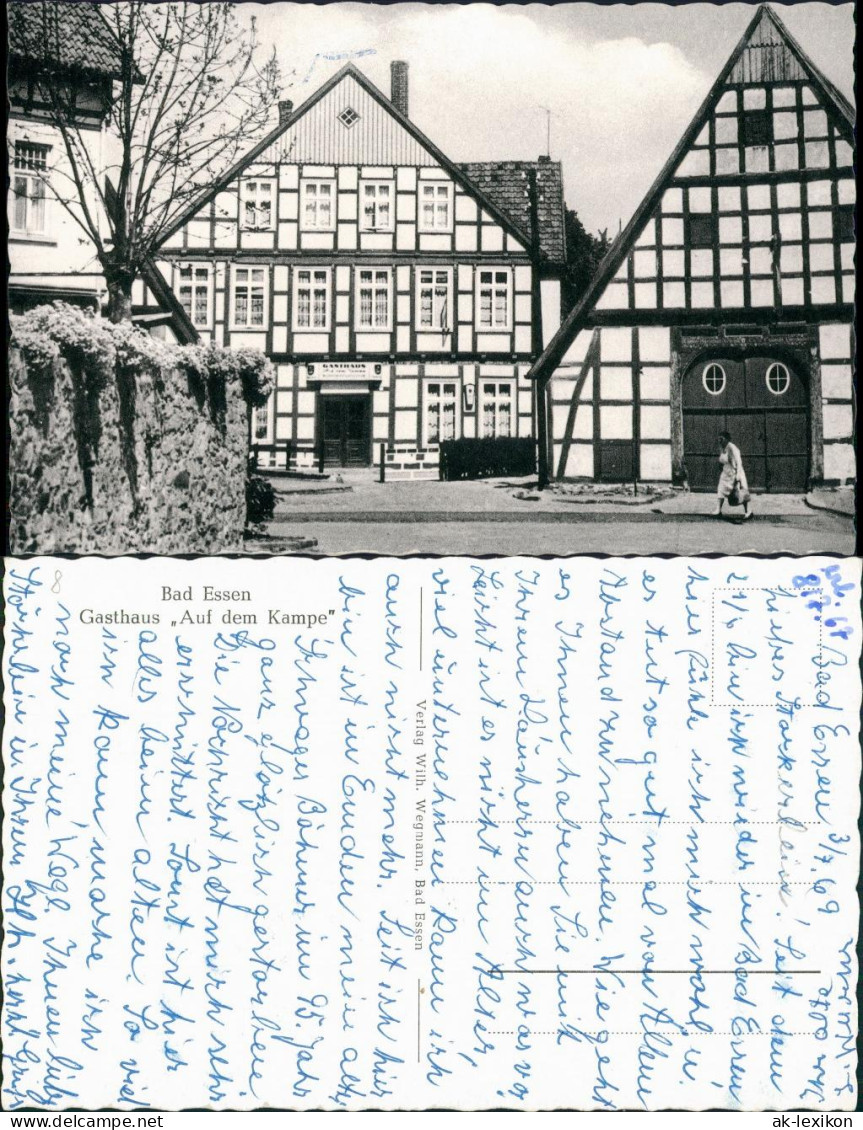 GASTHAUS
Bad Essen
Gasthaus „Auf dem Kampe"
Verlag Wilh. Wegmann, Bad Essen
Bad Essen 3/7.69
Liebes Stockerbein! Seit dem
24/6 bin ich wieder in Bad Essen
hier fühle ich mich wohl u.
es tut so gut mal von Allem
Abstand zu nehmen. Wie geht
es Ihnen haben Sie mit
Ihren Häusern auch was vor
Leicht ist es nicht im Alter,
viel unternehmen kann ich
auch nicht mehr. Seit ich hier
bin ist in Emden meine alte
Schwager Böhmer im 95. Jahr
ganz plötzlich gestorben
Die Nachricht hat mich sehr
erschüttert. Sonst ist hier
alles beim alten. So viel
ich kann mache ich
noch meine Wege. Ihnen liebe
in Ihrem
ak-lexikon